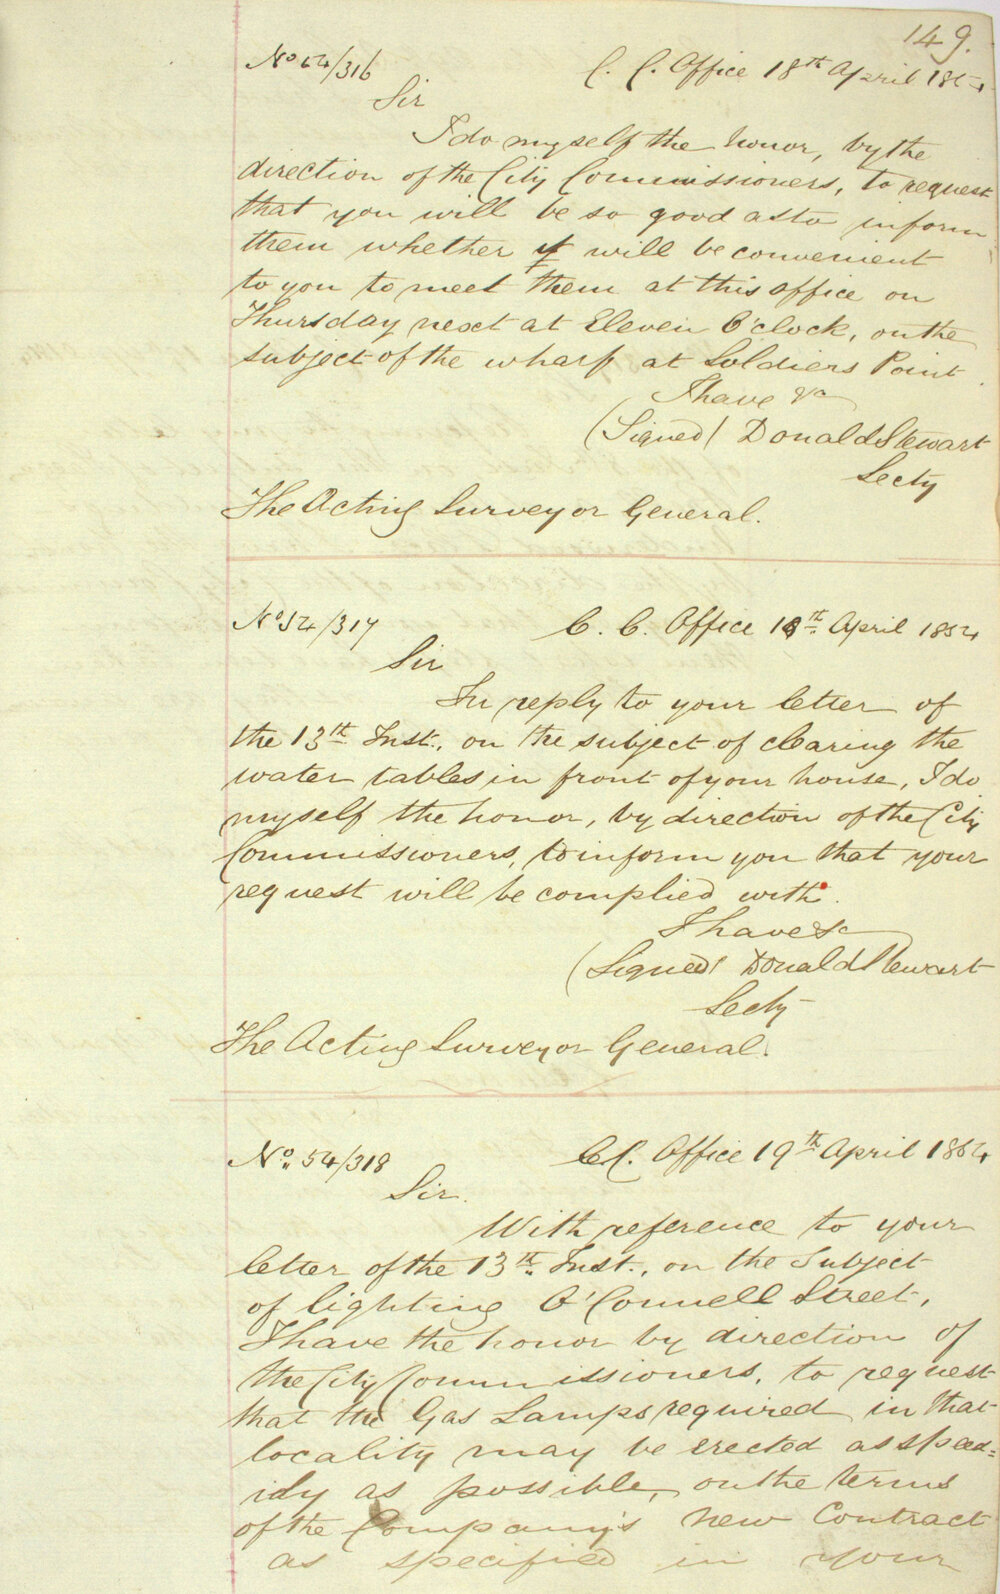 149.
No 54/316 C. C. Office 18th April 1854
Sir
I do myself the honor, by the
direction of the City Commissioners, to request
that you will be so good as to inform
them whether it will be convenient
to you to meet them at this office on
Thursday next at Eleven O'clock, on the
subject of the wharf at Soldiers Point.
I have &a
(Signed) Donald Stewart
Secty
The Acting Surveyor General.
No 54/317 C. C. Office 18th April 1854
Sir
In reply to your letter of
the 13th Inst., on the subject of clearing the
water tables in front of your house, I do
myself the honor, by direction of the City
Commissioners, to inform you that your
request will be complied with.
I have &c
(Signed) Donald Stewart
Secty
The Acting Surveyor General.
No. 54/318 C C. Office 19th April 1854
Sir.
With reference to your
letter of the 13th Inst., on the Subject
of lighting O'Connell Street,
I have the honor by direction of
the City Commissioners, to request
that the Gas Lamps required in that
locality may be erected as speed=
idy as possible, on the terms
of the Company's new Contract
as specified in your